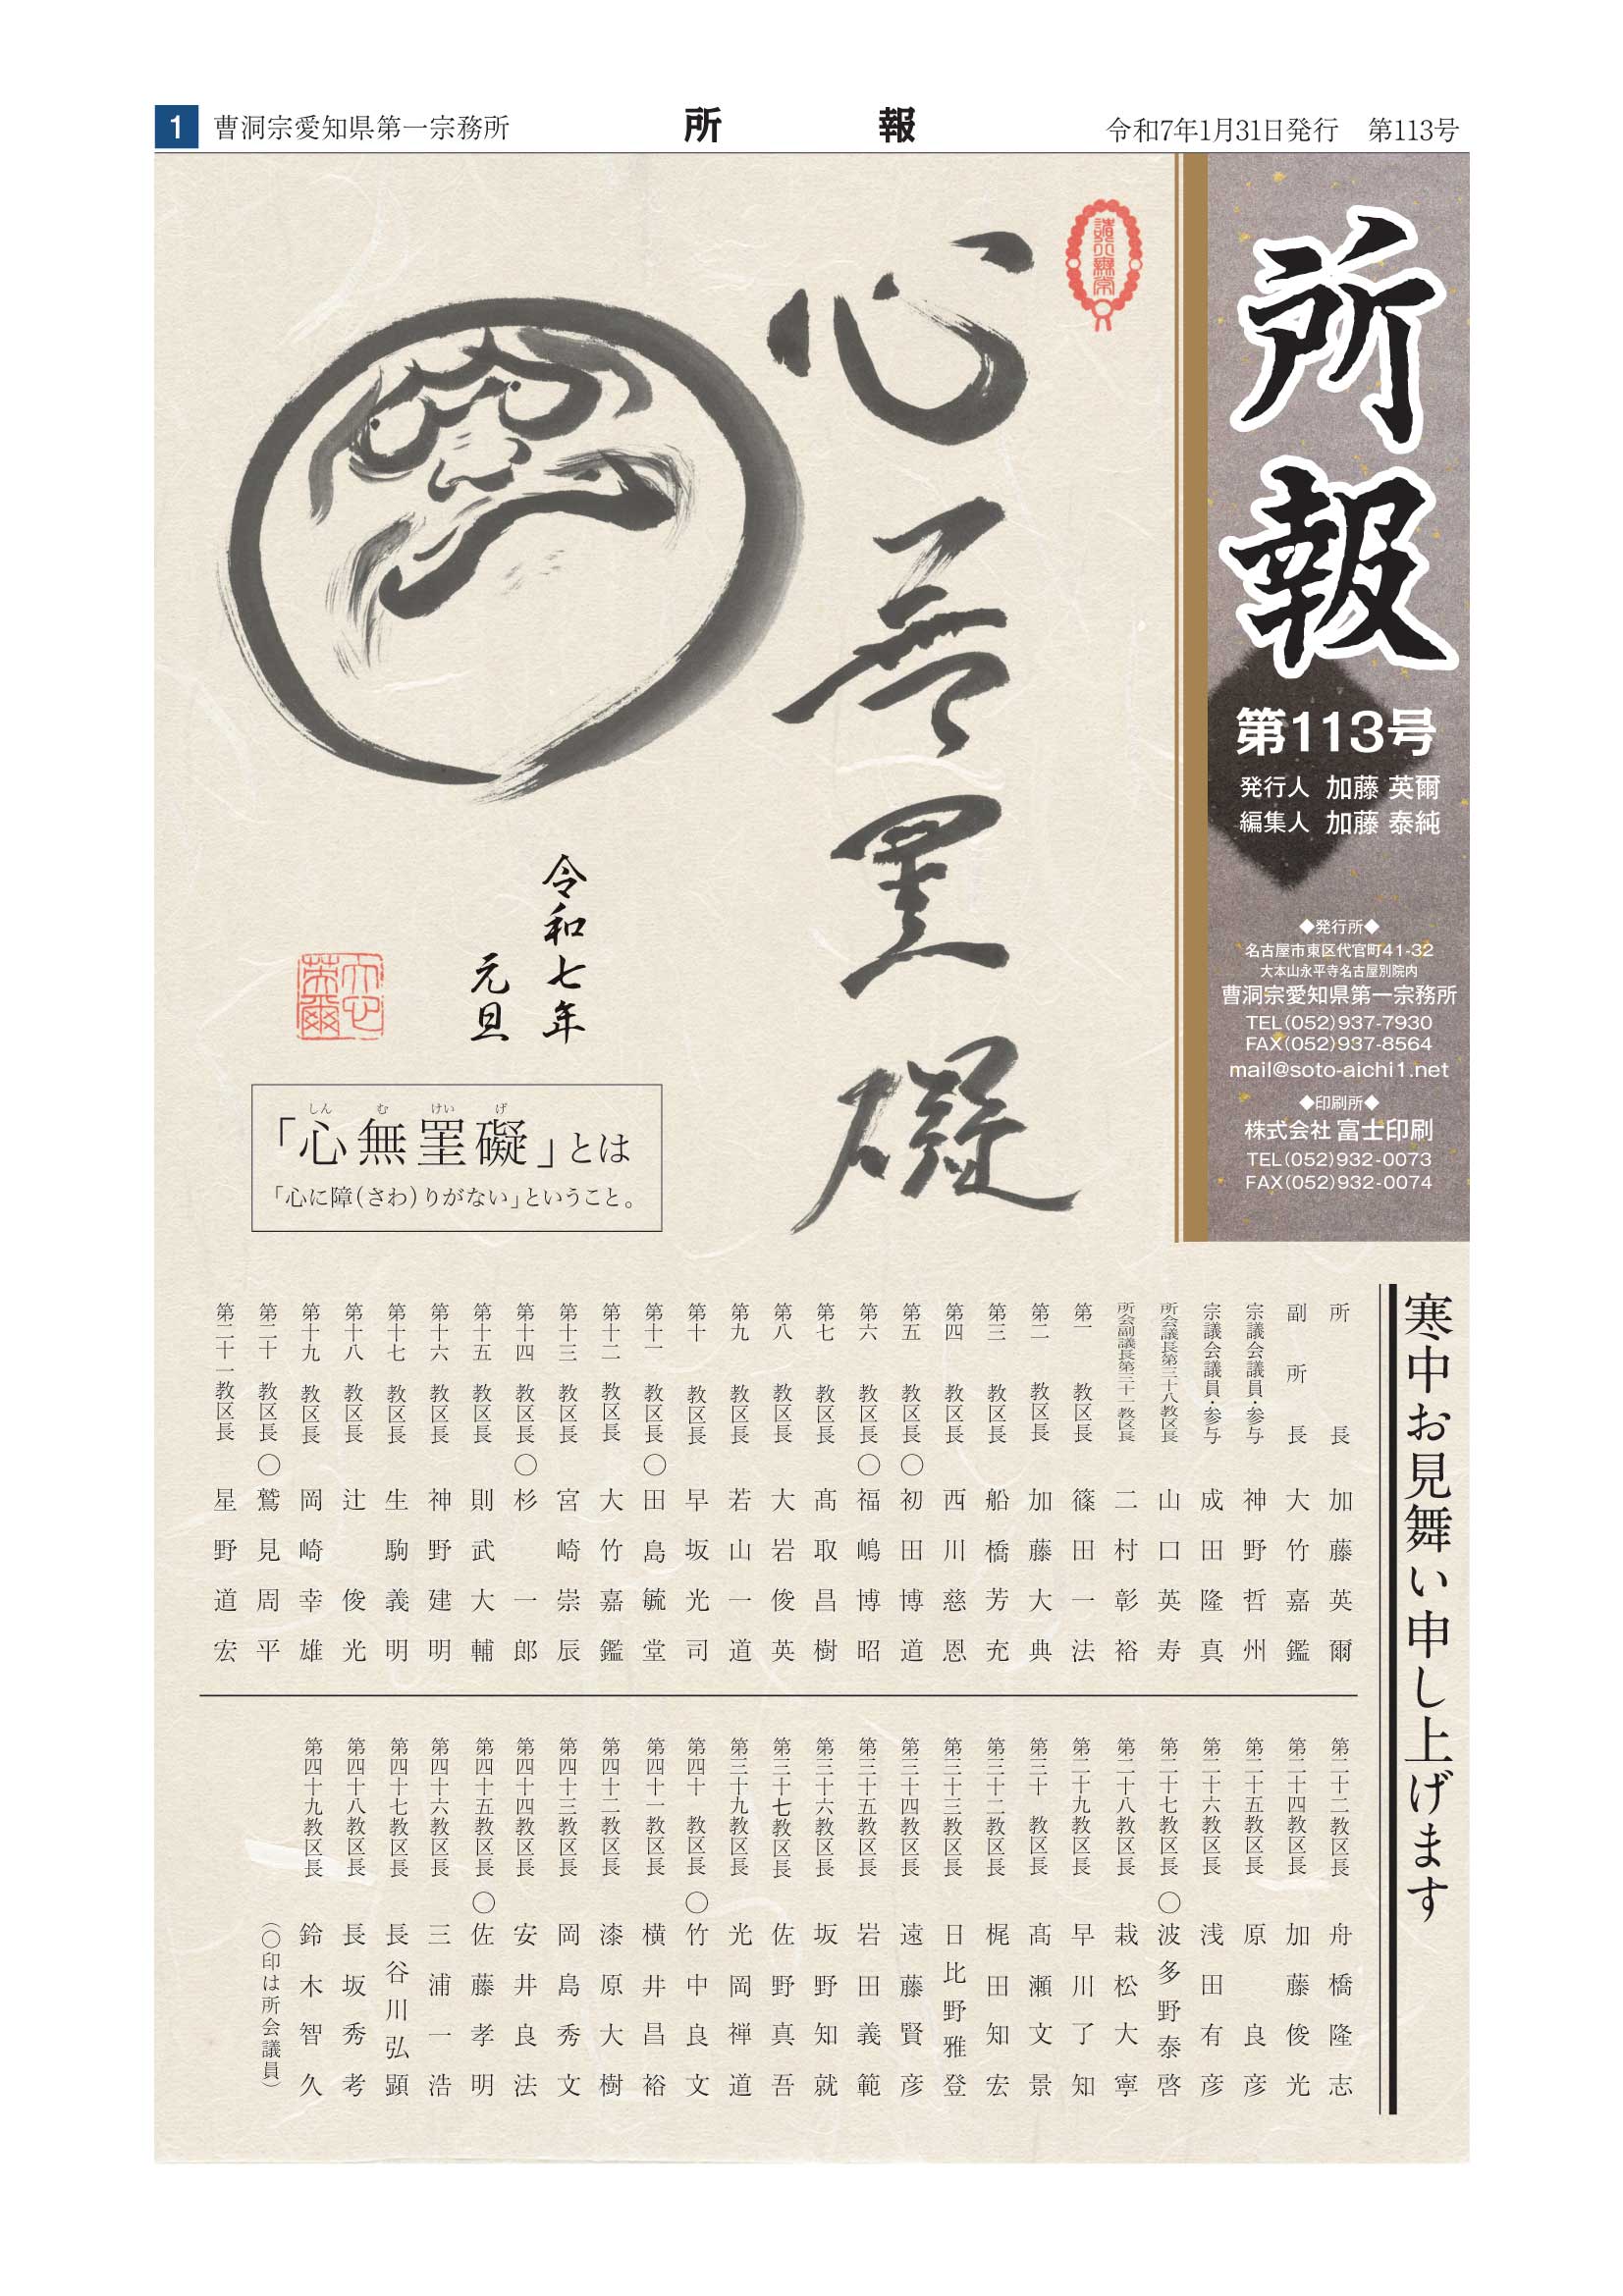 1 曹洞宗愛知県第一宗務所 所報 令和7年1月31日発行 第113号
所報
第113号
発行人 加藤 英爾
編集人 加藤 泰純
◆発行所◆
名古屋市東区代官町41-32
大本山永平寺名古屋別院内
曹洞宗愛知県第一宗務所
TEL(052)937-7930
FAX(052)937-8564
mail@soto-aichi1.net
◆印刷所◆
株式会社 富士印刷
TEL(052)932-0073
FAX(052)932-0074
心無罣礙
令和七年
元旦
しん む けい げ
「心無罣礙」とは
「心に障(さわ)りがない」ということ。
寒中お見舞い申し上げます
所長 加藤英爾
副所長 大竹嘉鑑
宗議会議員・参与 神野哲州
宗議会議員・参与 成田隆真
所会議長第三十八教区長 山口英寿
所会副議長第三十一教区長 二村彰裕
第一 教区長 篠田一法
第二 教区長 加藤大典
第三 教区長 船橋芳充
第四 教区長 西川慈恩
第五 教区長 〇初田博道
第六 教区長 〇福嶋博昭
第七 教区長 髙取昌樹
第八 教区長 大岩俊英
第九 教区長 若山一道
第十 教区長 早坂光司
第十一 教区長 〇田島毓堂
第十二 教区長 大竹嘉鑑
第十三 教区長 宮崎崇辰
第十四 教区長 〇杉 一郎
第十五 教区長 則武大輔
第十六 教区長 神野建明
第十七 教区長 生駒義明
第十八 教区長 辻 俊光
第十九 教区長 岡崎幸雄
第二十 教区長 〇鷲見周平
第二十一教区長 星野道宏
第二十二教区長 舟橋隆志
第二十四教区長 加藤俊光
第二十五教区長 原 良彦
第二十六教区長 浅田有彦
第二十七教区長 〇波多野泰啓
第二十八教区長 栽松大寧
第二十九教区長 早川了知
第三十 教区長 髙瀬文景
第三十二教区長 梶田知宏
第三十三教区長 日比野雅登
第三十四教区長 遠藤賢彦
第三十五教区長 岩田義範
第三十六教区長 坂野知就
第三十七教区長 佐野真吾
第三十九教区長 光岡禅道
第四十 教区長 〇竹中良文
第四十一教区長 横井昌裕
第四十二教区長 漆原大樹
第四十三教区長 岡島秀文
第四十四教区長 安井良法
第四十五教区長 〇佐藤孝明
第四十六教区長 三浦一浩
第四十七教区長 長谷川弘顕
第四十八教区長 長坂秀考
第四十九教区長 鈴木智久
(〇印は所会議員)